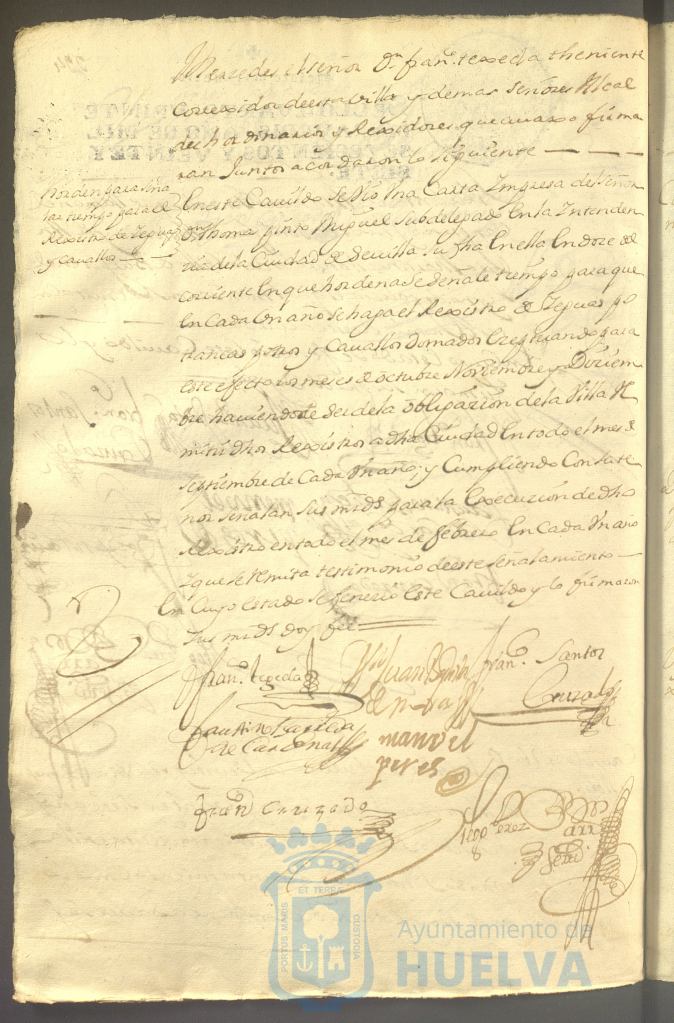 Merzedes el señor Dn. Fran.co texeda theniente
Correxidor de esta villa y demas señores Alcal
des hordinarios y Rexidores que avaxo firma
ran Juntos acordaron lo siguiente
En este Cavildo se vio Una Carta Impresa del señor
Dn. thomas pinto Miguel subdelegado En la Intenden
zia de la Ciudad de Sevilla su fha En ella En doze del
corriente En que hordena se señale tiempo para que
En Cada Un año se haga el Rexistro de Yeguas po
trancas potros y Cavallos Domados
este efecto los meses de octubre Noviembre y Diziem
bre haviendo de ser de la obligazion de la Villa Re
mitir dhos Rexistros a dha Ciudad En todo el mes de
septiembre de Cada Un año; y Cumpliendo Con su te
nor señalan sus mrds para la Execuzion de dho
Rexistro en todo el mes de febrero En Cada Un año
Y que se Remita testimonio de este señalamiento
En Cuyo estado se fenezio este Cavildo y lo firmaron
sus mrds doy fee
horden para seña
lar tiempo para el
Rexistro de Yeguas
y cavallos
Fran.co texeda
Juan
Fran.co Santos
Cruzado
de Cardenas
manuel
peres
Fran.co Cruzado
Diego Perez
PORTUS MARIS ET TERRAE CUSTODIA
Ayuntamiento de
HUELVA